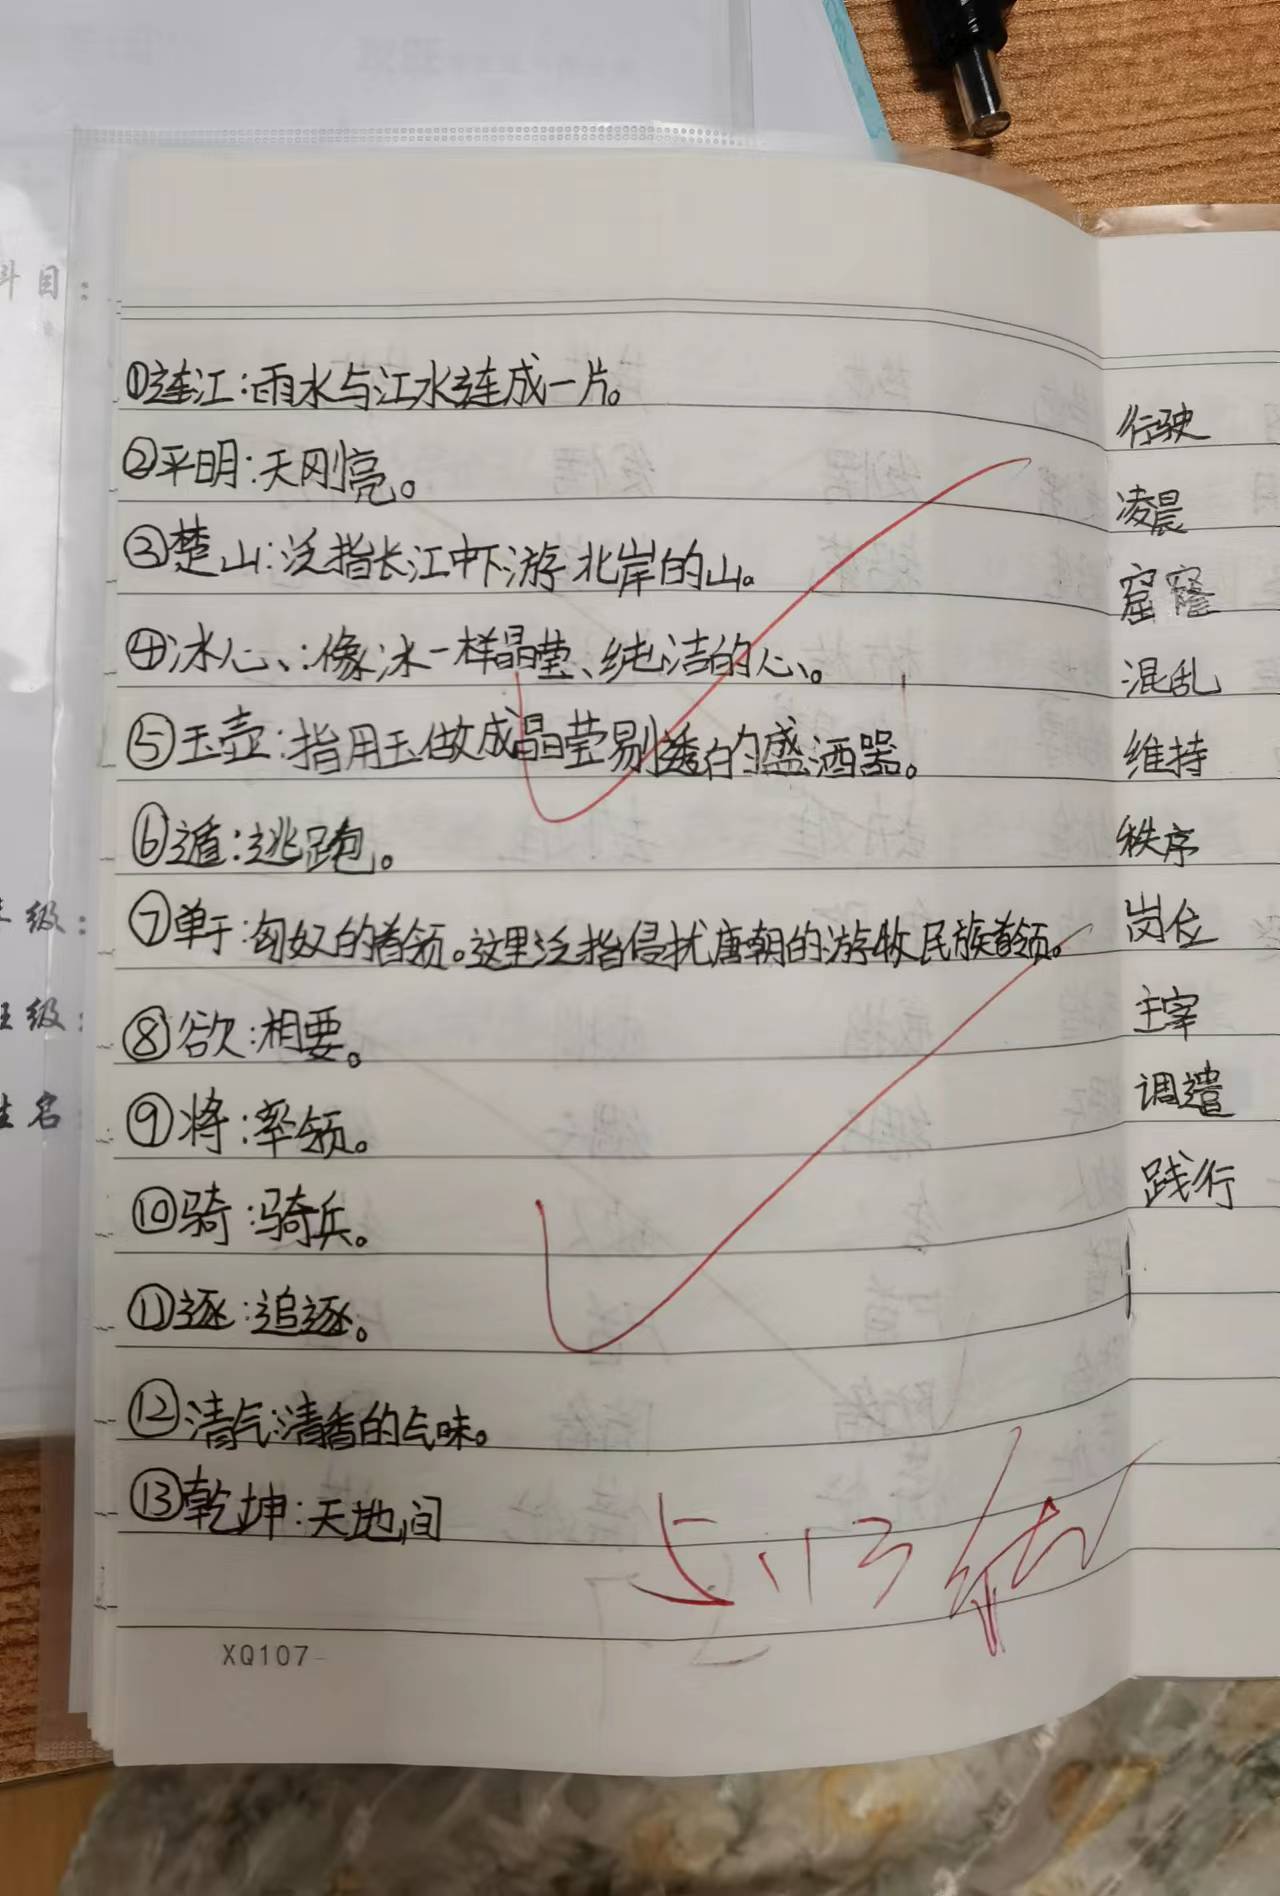 科目：
年级：
班级：
姓名
①连江：雨水与江水连成一片。
②平明：天刚亮。
③楚山：泛指长江中下游北岸的山。
④冰心：像冰一样晶莹、纯洁的心。
⑤玉壶：指用玉做成晶莹剔透的盛酒器。
⑥遁：逃跑。
⑦单于：匈奴的首领。这里泛指侵扰唐朝的游牧民族首领。
⑧欲：相要。
⑨将：率领。
⑩骑：骑兵。
⑪逐：追逐。
⑫清气：清香的气味。
⑬乾坤：天地间
5.13
XQ107
行驶
凌晨
窟窿
混乱
维持
秩序
岗位
主宰
调遣
践行